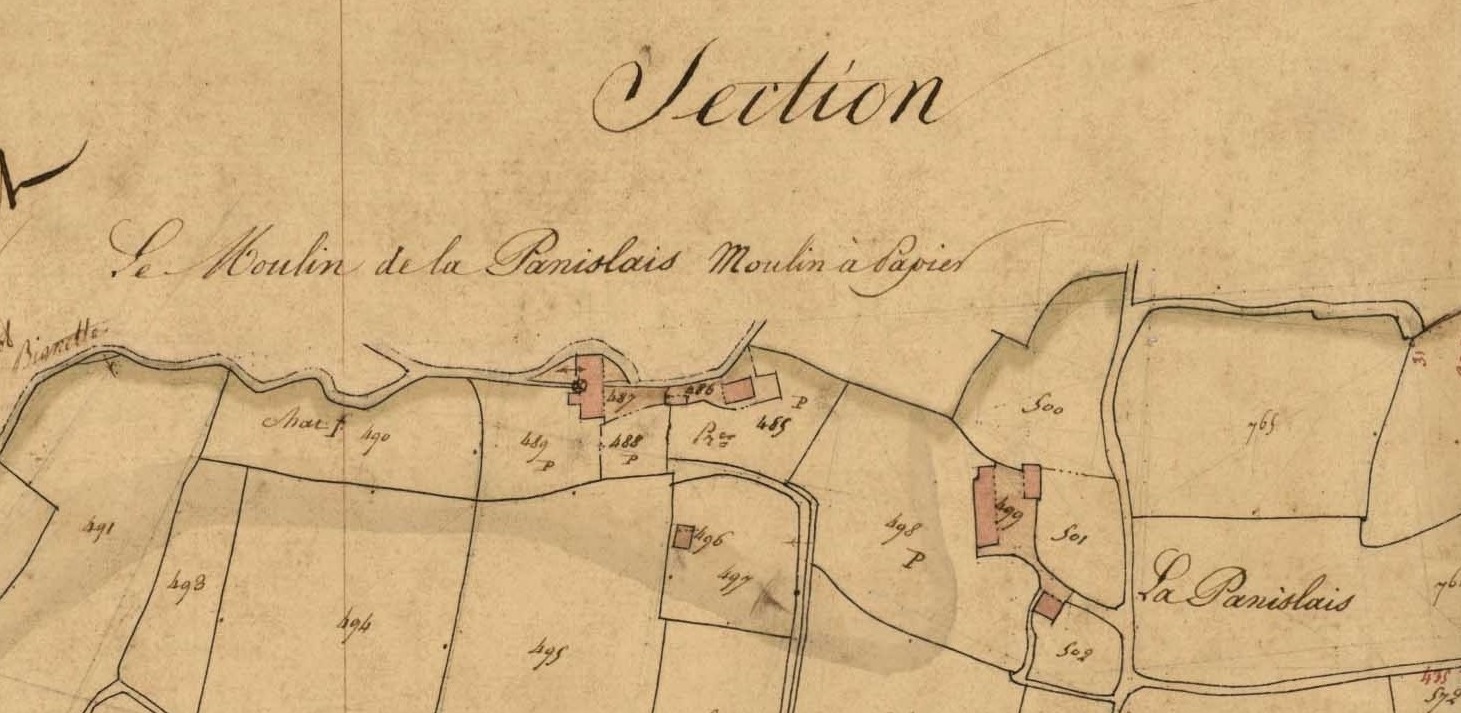 Section
Le Moulin de la Panislais Moulin à Papier
Bignette
31
500
765
486
487
485
P
490
489
P
488
P
499
498
P
501
491
496
497
493
La Panislais
494
495
502
485
572